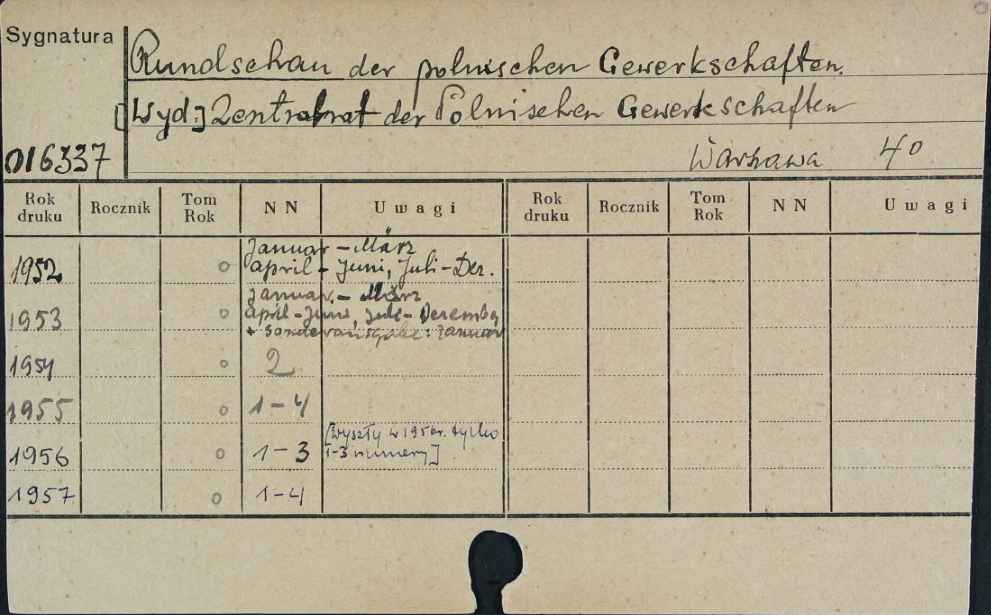 Sygnatura
Rundschau der polnischen Gewerkschaften.
[Wyd:] Zentralrat der Polnischen Gewerkschaften
016337
Warszawa 4°
Rok druku Rocznik Tom Rok NN Uwagi Rok druku Rocznik Tom Rok NN Uwagi
Januar - März
1952 o April - Juni, Juli - Dez.
Januar. - März
1953 o April - Juni, Juli - Dezember
+ Sonderausgabe: Januar
1954 o 2
1955 o 1-4
[Wyszły w 1956r. tylko
1956 o 1-3 1-3 numery]
1957 o 1-4